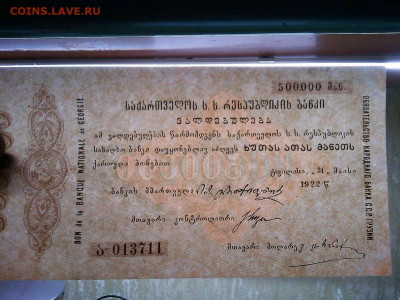 COINS.LAVE.RU
500.000 მან.
ᲡᲐᲥᲐᲠᲗᲕᲔᲚᲝᲡ Ს. Ს. ᲠᲔᲡᲞᲣᲑᲚᲘᲙᲘᲡ ᲑᲐᲜᲙᲘ
ᲕᲐᲚᲓᲔᲑᲣᲚᲔᲑᲐ
ამ ვალდებულების წარმომდგენს საქართველოს ს. ს. რესპუბლიკის
სახალხო ბანკი დაუყოვნებლივ აძლევს ᲮᲣᲗᲐᲡ ᲐᲗᲐᲡ ᲛᲐᲜᲔᲗᲡ
ქართული ბონებით.
ტფილისი, „31„ მაისი
1922 წ.
ბანკის მმართველი
მთავარი კონტროლიორი
მთავარი მოლარე
ა-013711
BON de la BANQUE NATIONALE de GÉORGIE
ОБЯЗАТЕЛЬСТВО НАРОДНОГО БАНКА С.С.Р. ГРУЗИИ